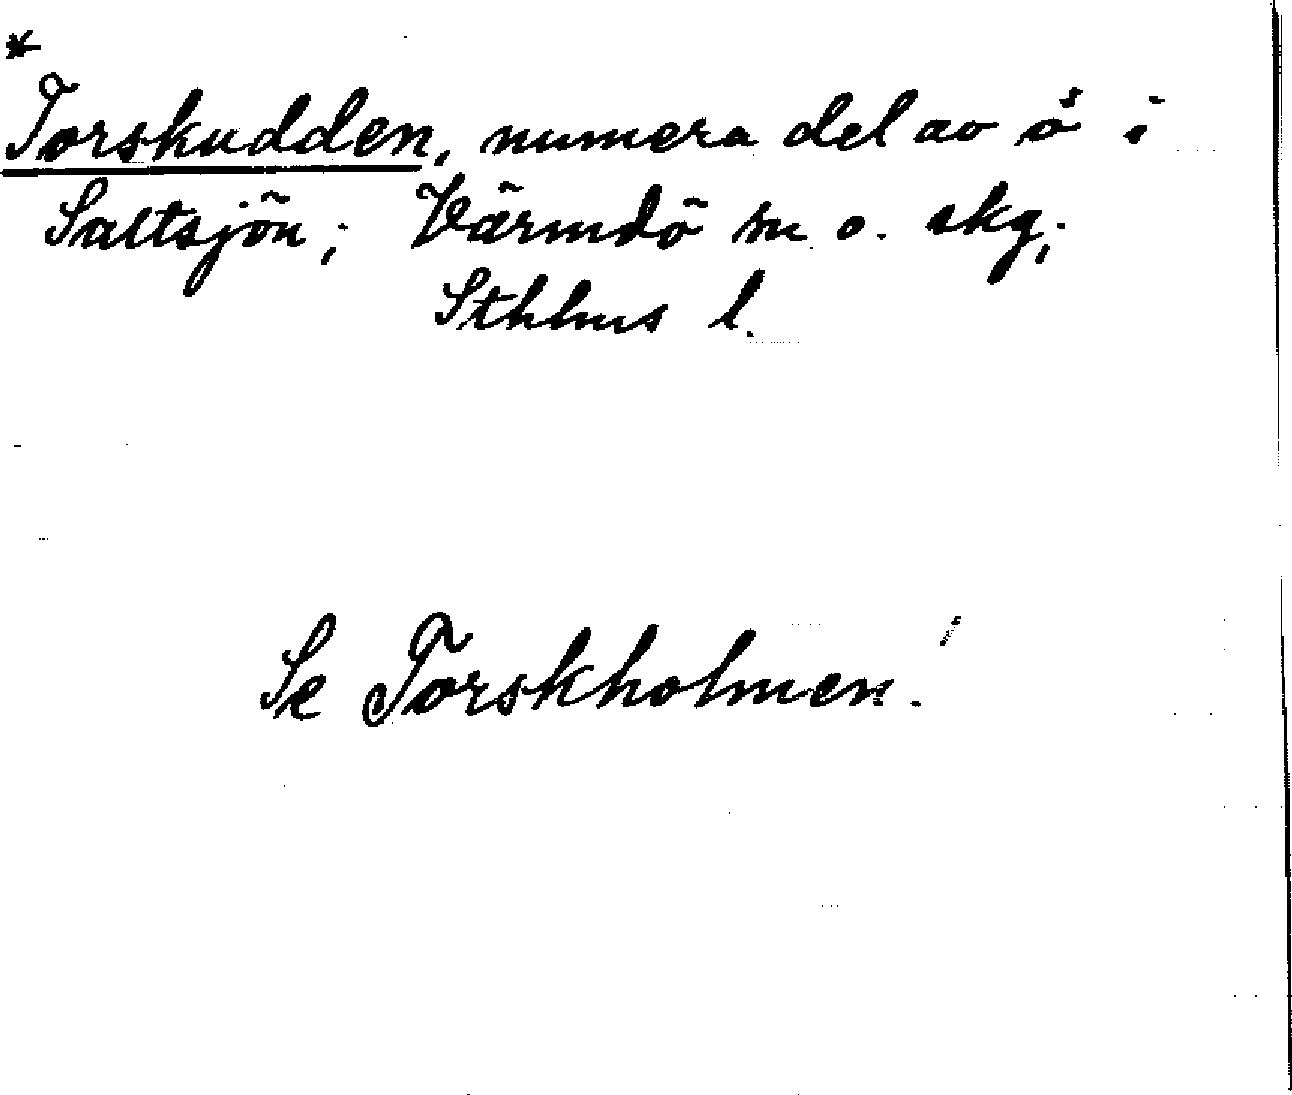 *
Torskudden, numera del av ö i
Saltsjön; Värmdö sn o. skg;
Sthlms l.
Se Torskholmen.